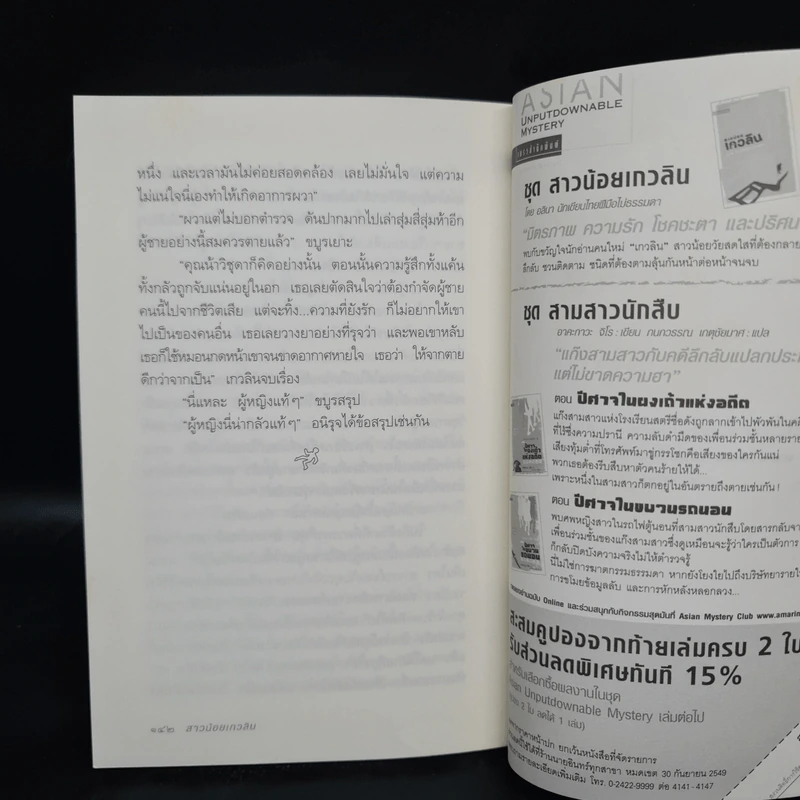 หนึ่ง และเวลามันไม่ค่อยสอดคล้อง เลยไม่มั่นใจ แต่ความ
ไม่แน่ใจนี่เองทำให้เกิดอาการผวา"
"ผวาแต่ไม่บอกตำรวจ ดันปากมากไปเล่าสุ่มสี่สุ่มห้าอีก
ผู้ชายอย่างนี้สมควรตายแล้ว" ขบูรเยาะ
"คุณน้าวิชุดาก็คิดอย่างนั้น ตอนนั้นความรู้สึกทั้งแค้น
ทั้งกลัวถูกจับแน่นอยู่ในอก เธอเลยตัดสินใจว่าต้องกำจัดผู้ชาย
คนนี้ไปจากชีวิตเสีย แต่จะทิ้ง...ความที่ยังรัก ก็ไม่อยากให้เขา
ไปเป็นของคนอื่น เธอเลยวางยาอย่างที่รุจว่า และพอเขาหลับ
เธอก็ใช้หมอนกดหน้าเขาจนขาดอากาศหายใจ เธอว่า ให้จากตาย
ดีกว่าจากเป็น" เกวลินจบเรื่อง
"นี่แหละ ผู้หญิงแท้ๆ" ขบูรสรุป
"ผู้หญิงนี่น่ากลัวแท้ๆ" อนิรุจได้ข้อสรุปเช่นกัน
๑๔๒ สาวน้อยเกวลิน
ASIAN
UNPUTDOWNABLE
MYSTERY
เกวลิน
ชุด สาวน้อยเกวลิน
โดย อลินา นักเขียนไทยฝีมือไม่ธรรมดา
"มิตรภาพ ความรัก โชคชะตา และปริศนา
พบกับขวัญใจนักอ่านคนใหม่ "เกวลิน" สาวน้อยวัยสดใสที่ต้องกลาย
ลึกลับ ชวนติดตาม ชนิดที่ต้องตามลุ้นกันหน้าต่อหน้าจนจบ
ชุด สามสาวนักสืบ
อาคะกาวะ จิโร : เขียน กนกวรรณ เกตุชัยมาศ : แปล
"แก๊งสามสาวกับคดีลึกลับแปลกประ
แต่ไม่ขาดความฮา"
ตอน ปีศาจในผงเถ้าแห่งอดีต
แก๊งสามสาวแห่งโรงเรียนสตรีชื่อดังถูกลากเข้าไปพัวพันในคดี
ที่ไร้ซึ่งความปรานี ความลับดำมืดของเพื่อนร่วมชั้นหลายราย
เสียงทุ้มต่ำที่โทรศัพท์มาขู่กรรโชกคือเสียงของใครกันแน่
พวกเธอต้องรีบสืบหาตัวคนร้ายให้ได้...
เพราะหนึ่งในสามสาวก็ตกอยู่ในอันตรายถึงตายเช่นกัน!
ตอน ปีศาจในขบวนรถนอน
พบศพหญิงสาวในรถไฟตู้นอนที่สามสาวนักสืบโดยสารกลับจาก
เพื่อนร่วมชั้นของแก๊งสามสาวซึ่งดูเหมือนจะรู้ว่าใครเป็นตัวการ
ก็กลับปิดบังความจริงไม่ให้ตำรวจรู้
นี่ไม่ใช่การฆาตกรรมธรรมดา หากยังโยงใยไปถึงบริษัทยารายใ
การขโมยข้อมูลลับ และการหักหลังหลอกลวง...
Online และร่วมสนุกกับกิจกรรมสุดมันที่ Asian Mystery Club www.amarin
สะสมคูปองจากท้ายเล่มครบ 2 ใบ
รับส่วนลดพิเศษทันที 15%
สำหรับเลือกซื้อผลงานในชุด
Asian Unputdownable Mystery เล่มต่อไป
2 ใบ ลดได้ 1 เล่ม)
ราคาหน้าปก ยกเว้นหนังสือที่จัดรายการ
ใช้ได้ที่ร้านนายอินทร์ทุกสาขา หมดเขต 30 กันยายน 2549
รายละเอียดเพิ่มเติม โทร. 0-2422-9999 ต่อ 4141-4147